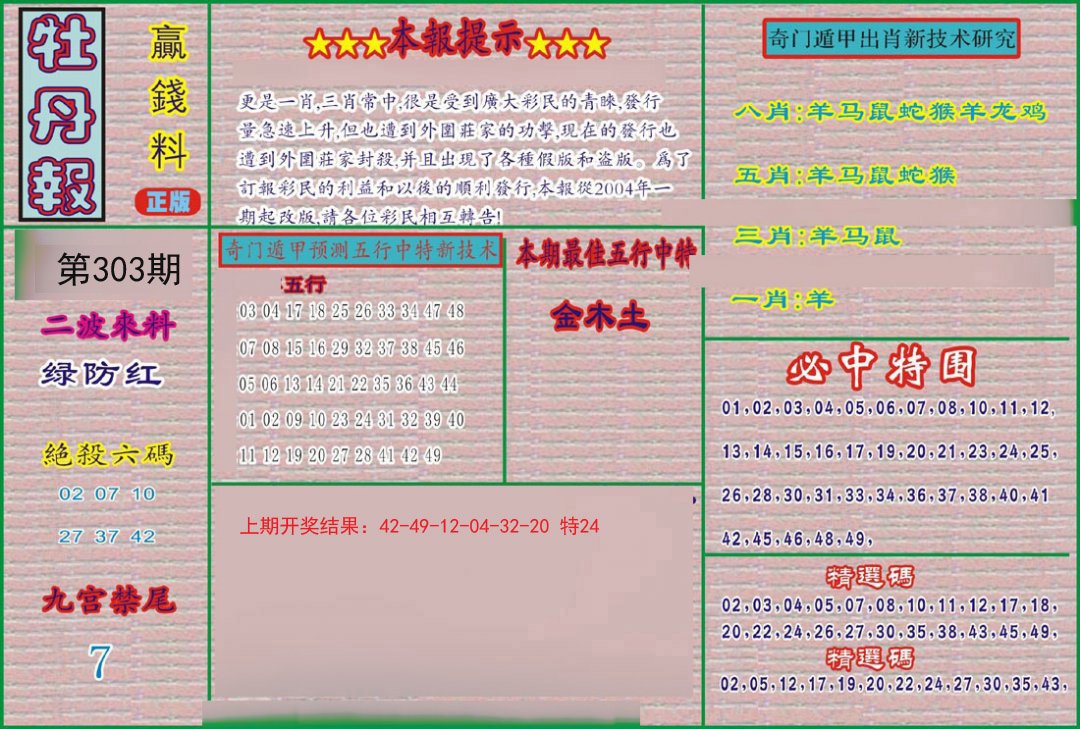 牡丹報
贏錢料
正版
第303期
二波來料
绿防红
絕殺六碼
02 07 10
27 37 42
九宫禁尾
7
★★★本報提示★★★
更是一肖,三肖常中,很是受到廣大彩民的青睞,發行
量急速上升,但也遭到外圍莊家的功擊,現在的發行也
遭到外圍莊家封殺,并且出現了各種假版和盗版。爲了
訂報彩民的利益和以後的順利發行,本報從2004年一
期起改版,請各位彩民相互轉告!
奇门遁甲预测五行中特新技术
五行
03 04 17 18 25 26 33 34 47 48
07 08 15 16 29 32 37 38 45 46
05 06 13 14 21 22 35 36 43 44
01 02 09 10 23 24 31 32 39 40
11 12 19 20 27 28 41 42 49
本期最佳五行中特
金木土
上期开奖结果：42-49-12-04-32-20 特24
奇门遁甲出肖新技术研究
八肖:羊马鼠蛇猴羊龙鸡
五肖:羊马鼠蛇猴
三肖:羊马鼠
一肖:羊
必中特围
01,02,03,04,05,06,07,08,10,11,12,
13,14,15,16,17,19,20,21,23,24,25,
26,28,30,31,33,34,36,37,38,40,41
42,45,46,48,49,
精選碼
02,03,04,05,07,08,10,11,12,17,18,
20,22,24,26,27,30,35,38,43,45,49,
精選碼
02,05,12,17,19,20,22,24,27,30,35,43,